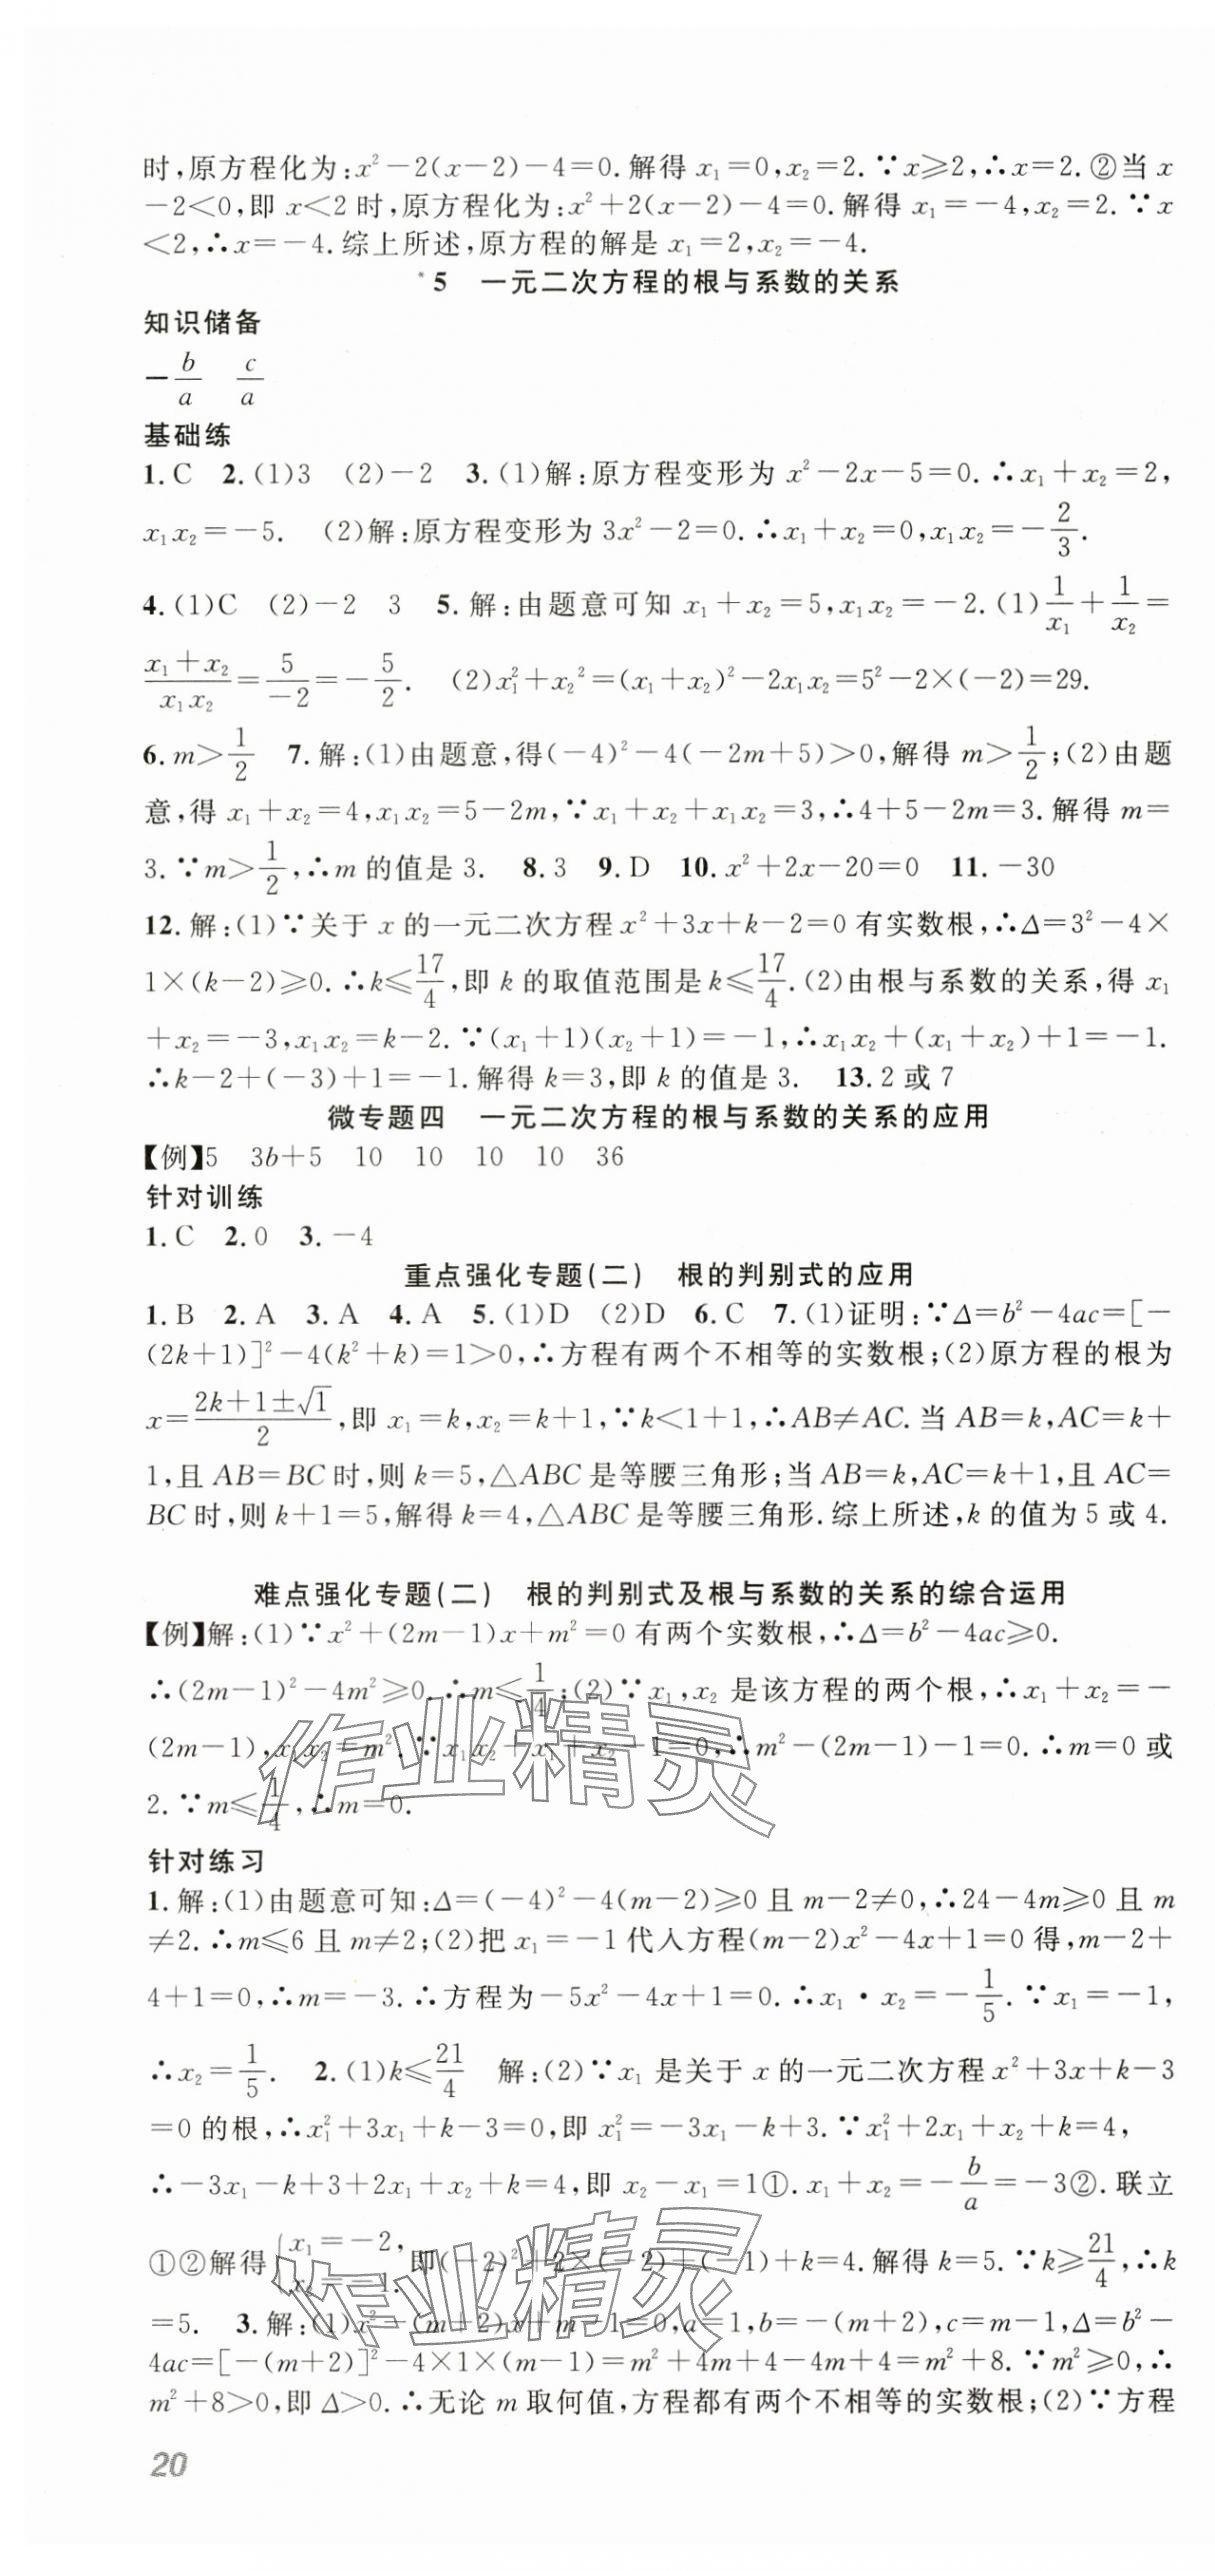 时,原方程化为:x²-2(x-2)-4=0.解得 x₁=0,x₂=2.∵x≥2,∴x=2.②当 x
-2<0,即 x<2 时,原方程化为:x²+2(x-2)-4=0.解得 x₁=-4,x₂=2.∵x
<2,∴x=-4.综上所述,原方程的解是 x₁=2,x₂=-4.
*5 一元二次方程的根与系数的关系
知识储备
-b/a c/a
基础练
1.C 2.(1)3 (2)-2 3.(1)解:原方程变形为 x²-2x-5=0.∴x₁+x₂=2,
x₁x₂=-5. (2)解:原方程变形为 3x²-2=0.∴x₁+x₂=0,x₁x₂=-2/3.
4.(1)C (2)-2 3 5.解:由题意可知 x₁+x₂=5,x₁x₂=-2.(1)1/x₁+1/x₂=
(x₁+x₂)/(x₁x₂)=5/(-2)=-5/2. (2)x₁²+x₂²=(x₁+x₂)²-2x₁x₂=5²-2×(-2)=29.
6.m>1/2 7.解:(1)由题意,得(-4)²-4(-2m+5)>0,解得 m>1/2;(2)由题
意,得 x₁+x₂=4,x₁x₂=5-2m,∵x₁+x₂+x₁x₂=3,∴4+5-2m=3.解得 m=
3.∵m>1/2,∴m 的值是 3. 8.3 9.D 10.x²+2x-20=0 11.-30
12.解:(1)∵关于 x 的一元二次方程 x²+3x+k-2=0 有实数根,∴Δ=3²-4×
1×(k-2)≥0.∴k≤17/4,即 k 的取值范围是 k≤17/4.(2)由根与系数的关系,得 x₁
+x₂=-3,x₁x₂=k-2.∵(x₁+1)(x₂+1)=-1,∴x₁x₂+(x₁+x₂)+1=-1.
∴k-2+(-3)+1=-1.解得 k=3,即 k 的值是 3. 13.2 或 7
微专题四 一元二次方程的根与系数的关系的应用
【例】5 3b+5 10 10 10 10 36
针对训练
1.C 2.0 3.-4
重点强化专题(二) 根的判别式的应用
1.B 2.A 3.A 4.A 5.(1)D (2)D 6.C 7.(1)证明:∵Δ=b²-4ac=[-
(2k+1)]²-4(k²+k)=1>0,∴方程有两个不相等的实数根;(2)原方程的根为
x=(2k+1±√1)/2,即 x₁=k,x₂=k+1,∵k<1+1,∴AB≠AC.当 AB=k,AC=k+
1,且 AB=BC 时,则 k=5,△ABC 是等腰三角形;当 AB=k,AC=k+1,且 AC=
BC 时,则 k+1=5,解得 k=4,△ABC 是等腰三角形.综上所述,k 的值为 5 或 4.
难点强化专题(二) 根的判别式及根与系数的关系的综合运用
【例】解:(1)∵x²+(2m-1)x+m²=0 有两个实数根,∴Δ=b²-4ac≥0.
∴(2m-1)²-4m²≥0.∴m≤1/4;(2)∵x₁,x₂ 是该方程的两个根,∴x₁+x₂=-
(2m-1),x₁x₂=m².∵x₁x₂+x₁+x₂-1=0,∴m²-(2m-1)-1=0.∴m=0 或
2.∵m≤1/4,∴m=0.
作业精灵
针对练习
1.解:(1)由题意可知:Δ=(-4)²-4(m-2)≥0 且 m-2≠0,∴24-4m≥0 且 m
≠2.∴m≤6 且 m≠2;(2)把 x₁=-1 代入方程(m-2)x²-4x+1=0 得,m-2+
4+1=0,∴m=-3.∴方程为-5x²-4x+1=0.∴x₁·x₂=-1/5.∵x₁=-1,
∴x₂=1/5. 2.(1)k≤21/4 解:(2)∵x₁ 是关于 x 的一元二次方程 x²+3x+k-3
=0 的根,∴x₁²+3x₁+k-3=0,即 x₁²=-3x₁-k+3.∵x₁²+2x₁+x₂+k=4,
∴-3x₁-k+3+2x₁+x₂+k=4,即 x₂-x₁=1①.x₁+x₂=-b/a=-3②.联立
①②解得{x₁=-2,x₂=-1.即(-2)²+2×(-2)+(-1)+k=4.解得 k=5.∵k≥21/4,∴k
作业精灵
=5. 3.解:(1)x²-(m+2)x+m-1=0,a=1,b=-(m+2),c=m-1,Δ=b²-
4ac=[-(m+2)]²-4×1×(m-1)=m²+4m+4-4m+4=m²+8.∵m²≥0,∴
m²+8>0,即 Δ>0.∴无论 m 取何值,方程都有两个不相等的实数根;(2)∵方程
20